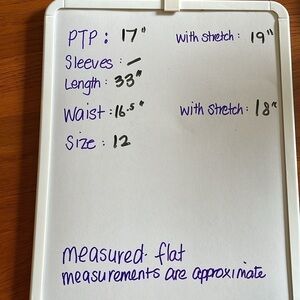 PTP: 17" with stretch: 19"
Sleeves: –
Length: 33"
Waist: 16.5" with stretch: 18"
Size: 12
measured flat
measurements are approximate